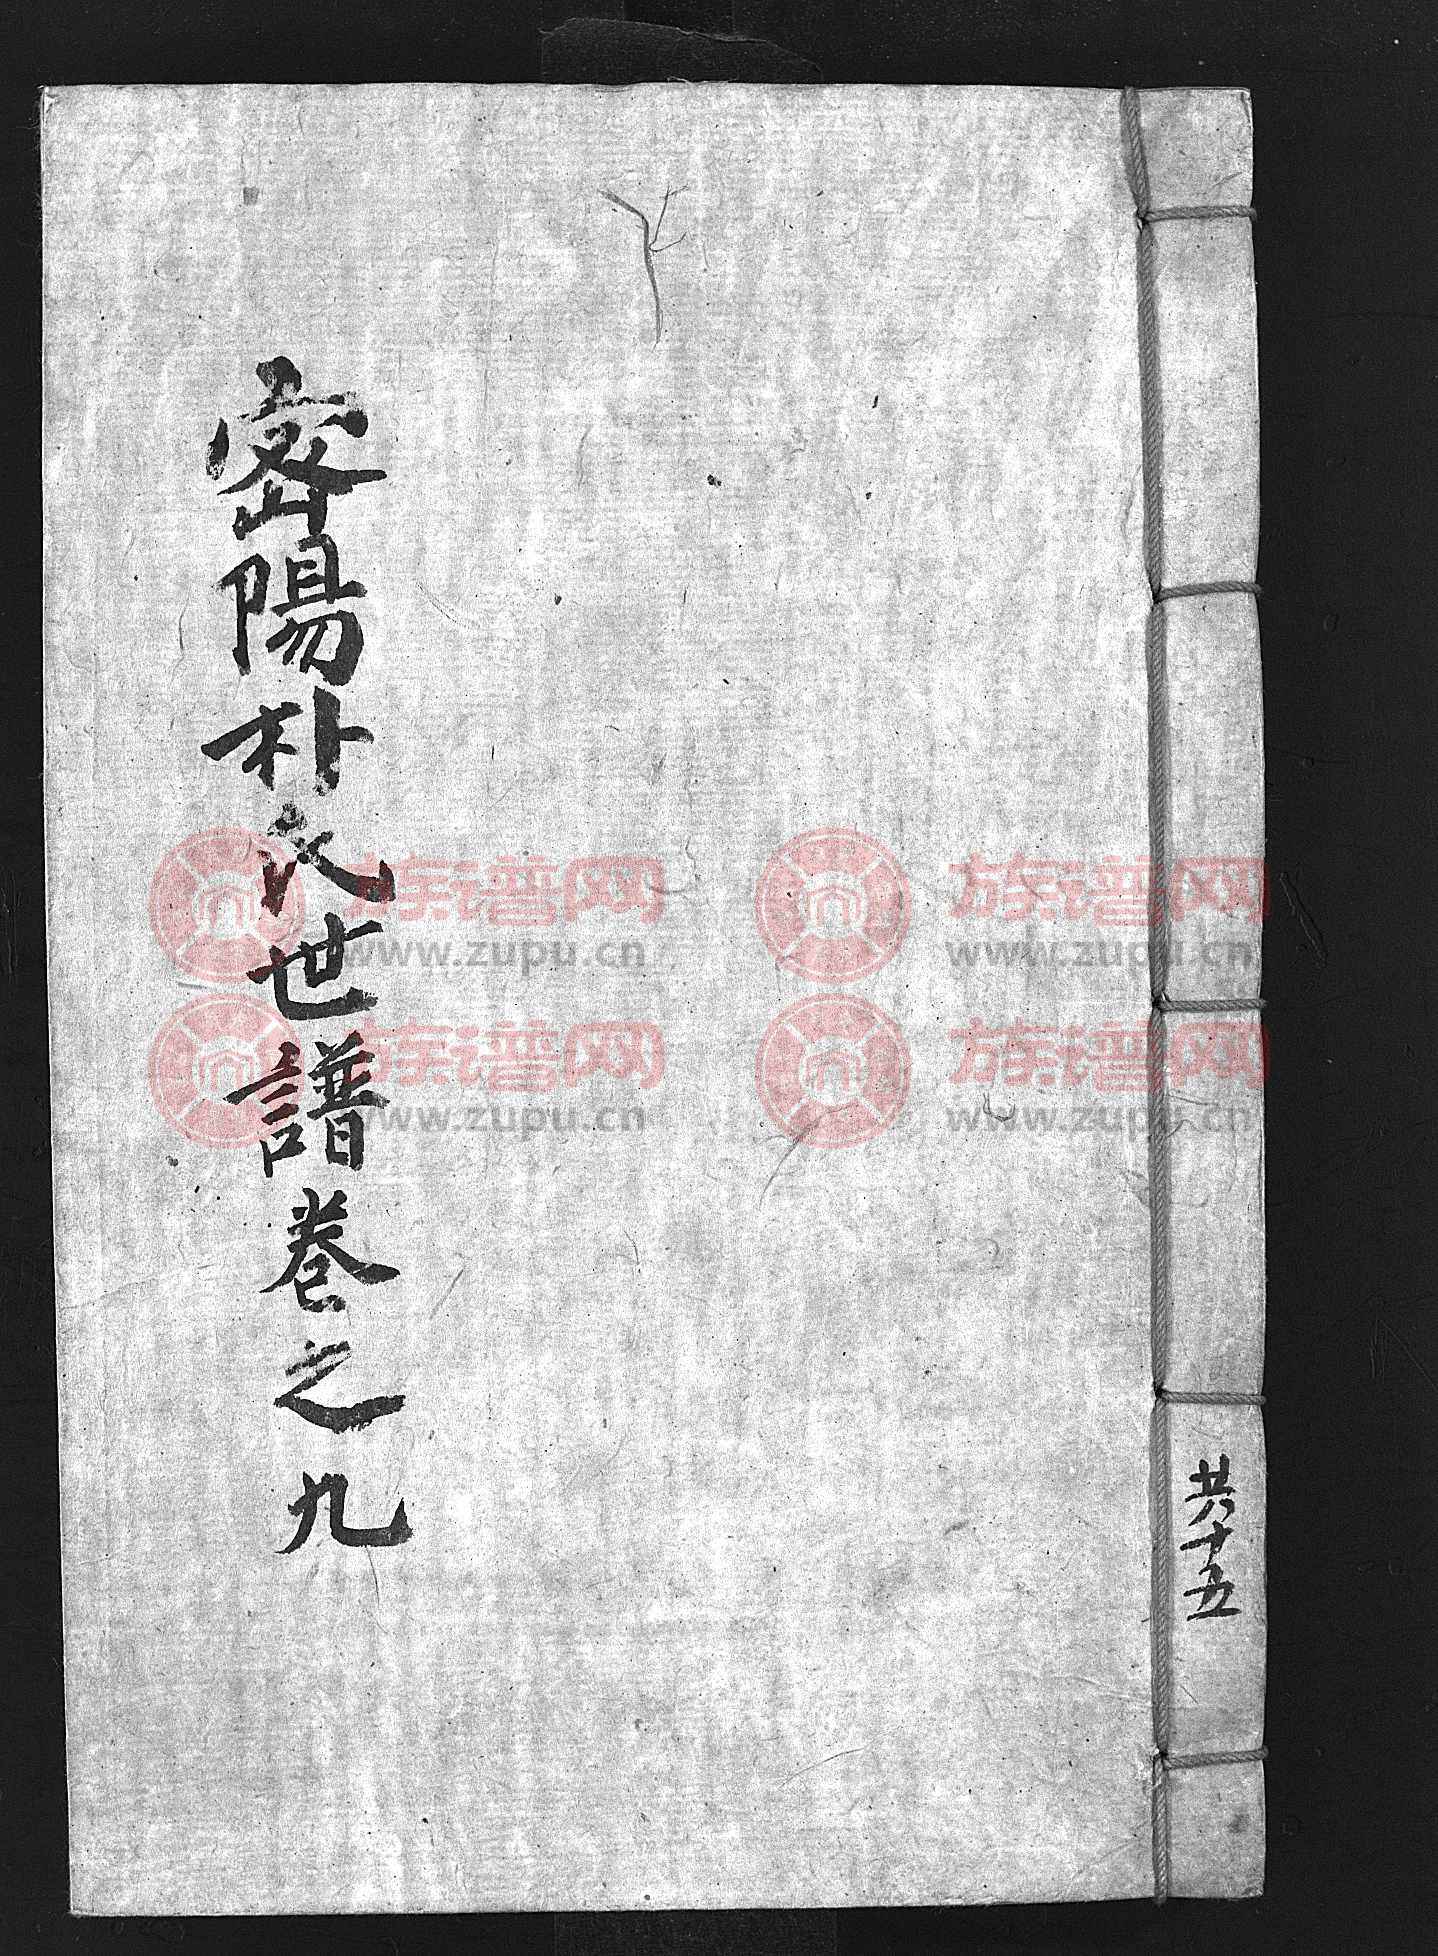 共十五
密陽朴氏世譜卷之九
族谱网
www.zupu.cn
族谱网
www.zupu.cn
族谱网
www.zupu.cn
族谱网
www.zupu.cn